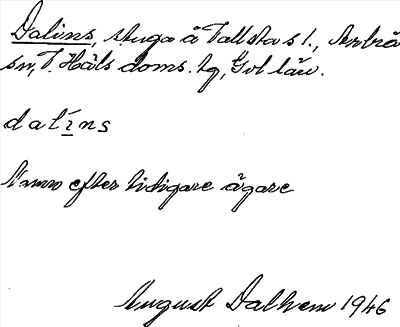 Dalins, stuga å Tallsta s 1., Arbrå
sn, V. Häls doms. tg, Gvl län.
dalíns
Namn efter tidigare ägare
August Dalhem 1946